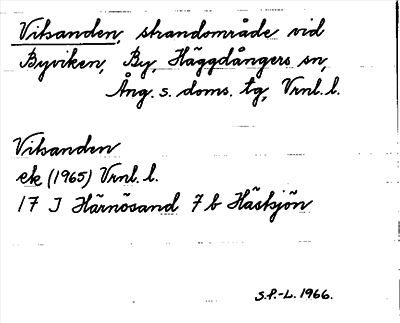 Viksanden, strandområde vid
Byviken, By, Häggdångers sn,
Ång. s. doms. tg, Vrnl. l.
Viksanden
ek (1965) Vrnl. l.
17 J Härnösand 7 b Hästsjön
S.P.-L. 1966.